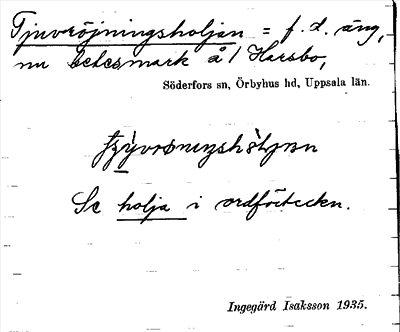 Tjuvröjningsholjan = f. d. äng,
nu betesmark å / Harsbo,
Söderfors sn, Örbyhus hd, Uppsala län.
Se holja i ordförteckn.
Ingegärd Isaksson 1935.